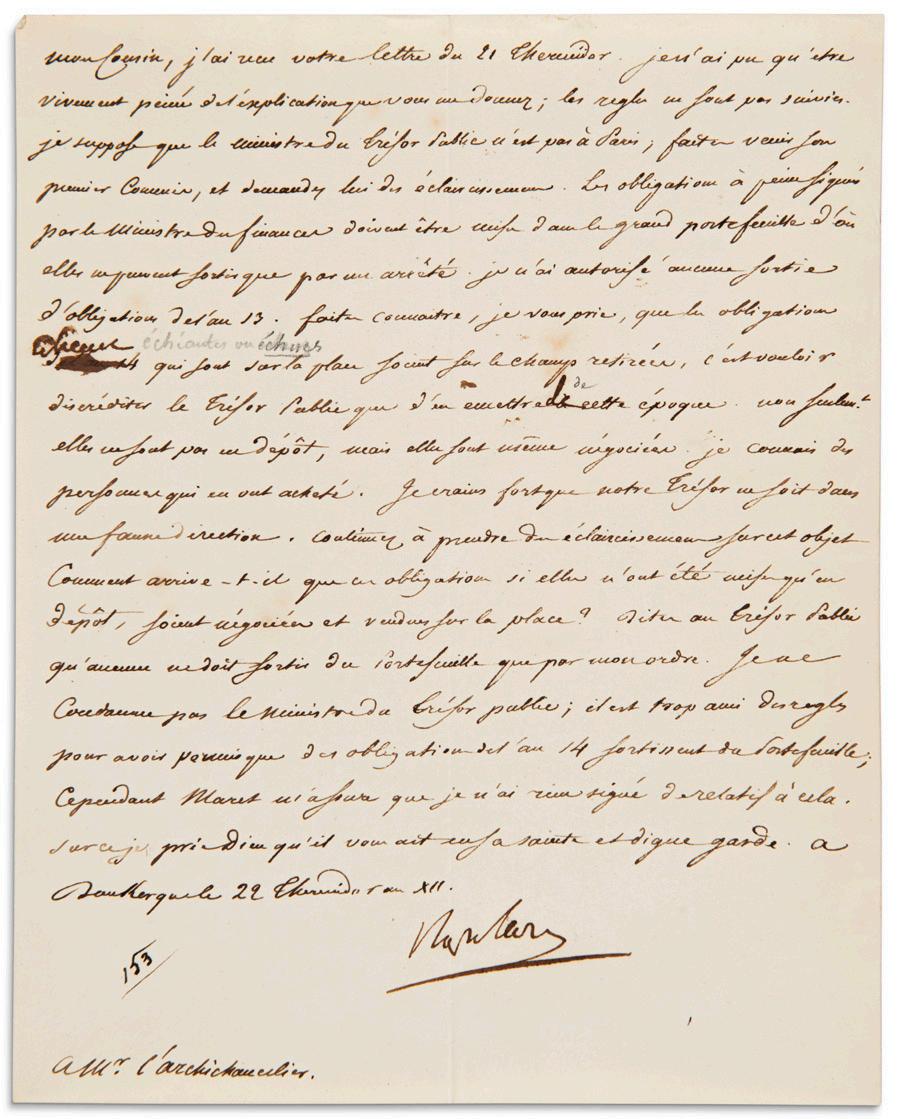 mon Cousin, j'ai reçu votre lettre du 21 Thermidor. je n'ai pu qu'être
vivement peiné de l'explication que vous me donnez; les regles ne sont pas suivies.
je suppose que le ministre du Trésor Public n'est pas à Paris; faites venir son
premier Commis, et demandez lui des éclaircissemens. Les obligations à peine signées
par le Ministre des finances doivent être mises dans le grand portefeuille d'où
elles ne peuvent sortir que par un arrêté. je n'ai autorisé aucune sortie
d'obligations de l'an 13. faites connaitre, je vous prie, que les obligations
échéantes ou échues
14 qui sont sur la place soient sur le champ retirées, c'est vouloir
de
discréditer le Trésor Public que d'en émettre de cette époque. non seulemt
elles ne sont pas en dépôt, mais elles sont même négociées. je connais des
personnes qui en ont acheté. Je crains fort que notre Trésor ne soit dans
une fausse direction. Continuez à prendre des éclaircissemens sur cet objet
Comment arrive-t-il que ces obligations si elles n'ont été mises qu'en
dépôt, soient négociées et vendues sur la place? Dites au Trésor Public
qu'aucune ne doit sortir du Portefeuille que par mon ordre. Je ne
Condamne pas le Ministre du Trésor public; il est trop ami des regles
pour avoir permis que des obligations de l'an 14 sortissent du Portefeuille;
Cependant Maret m'assure que je n'ai rien signé de relatif à cela.
sur ce je prie Dieu qu'il vous ait en sa sainte et digne garde. a
Dunkerque le 22 Thermidor an XII.
Napoleon
153
A Mr. l'archichancelier.